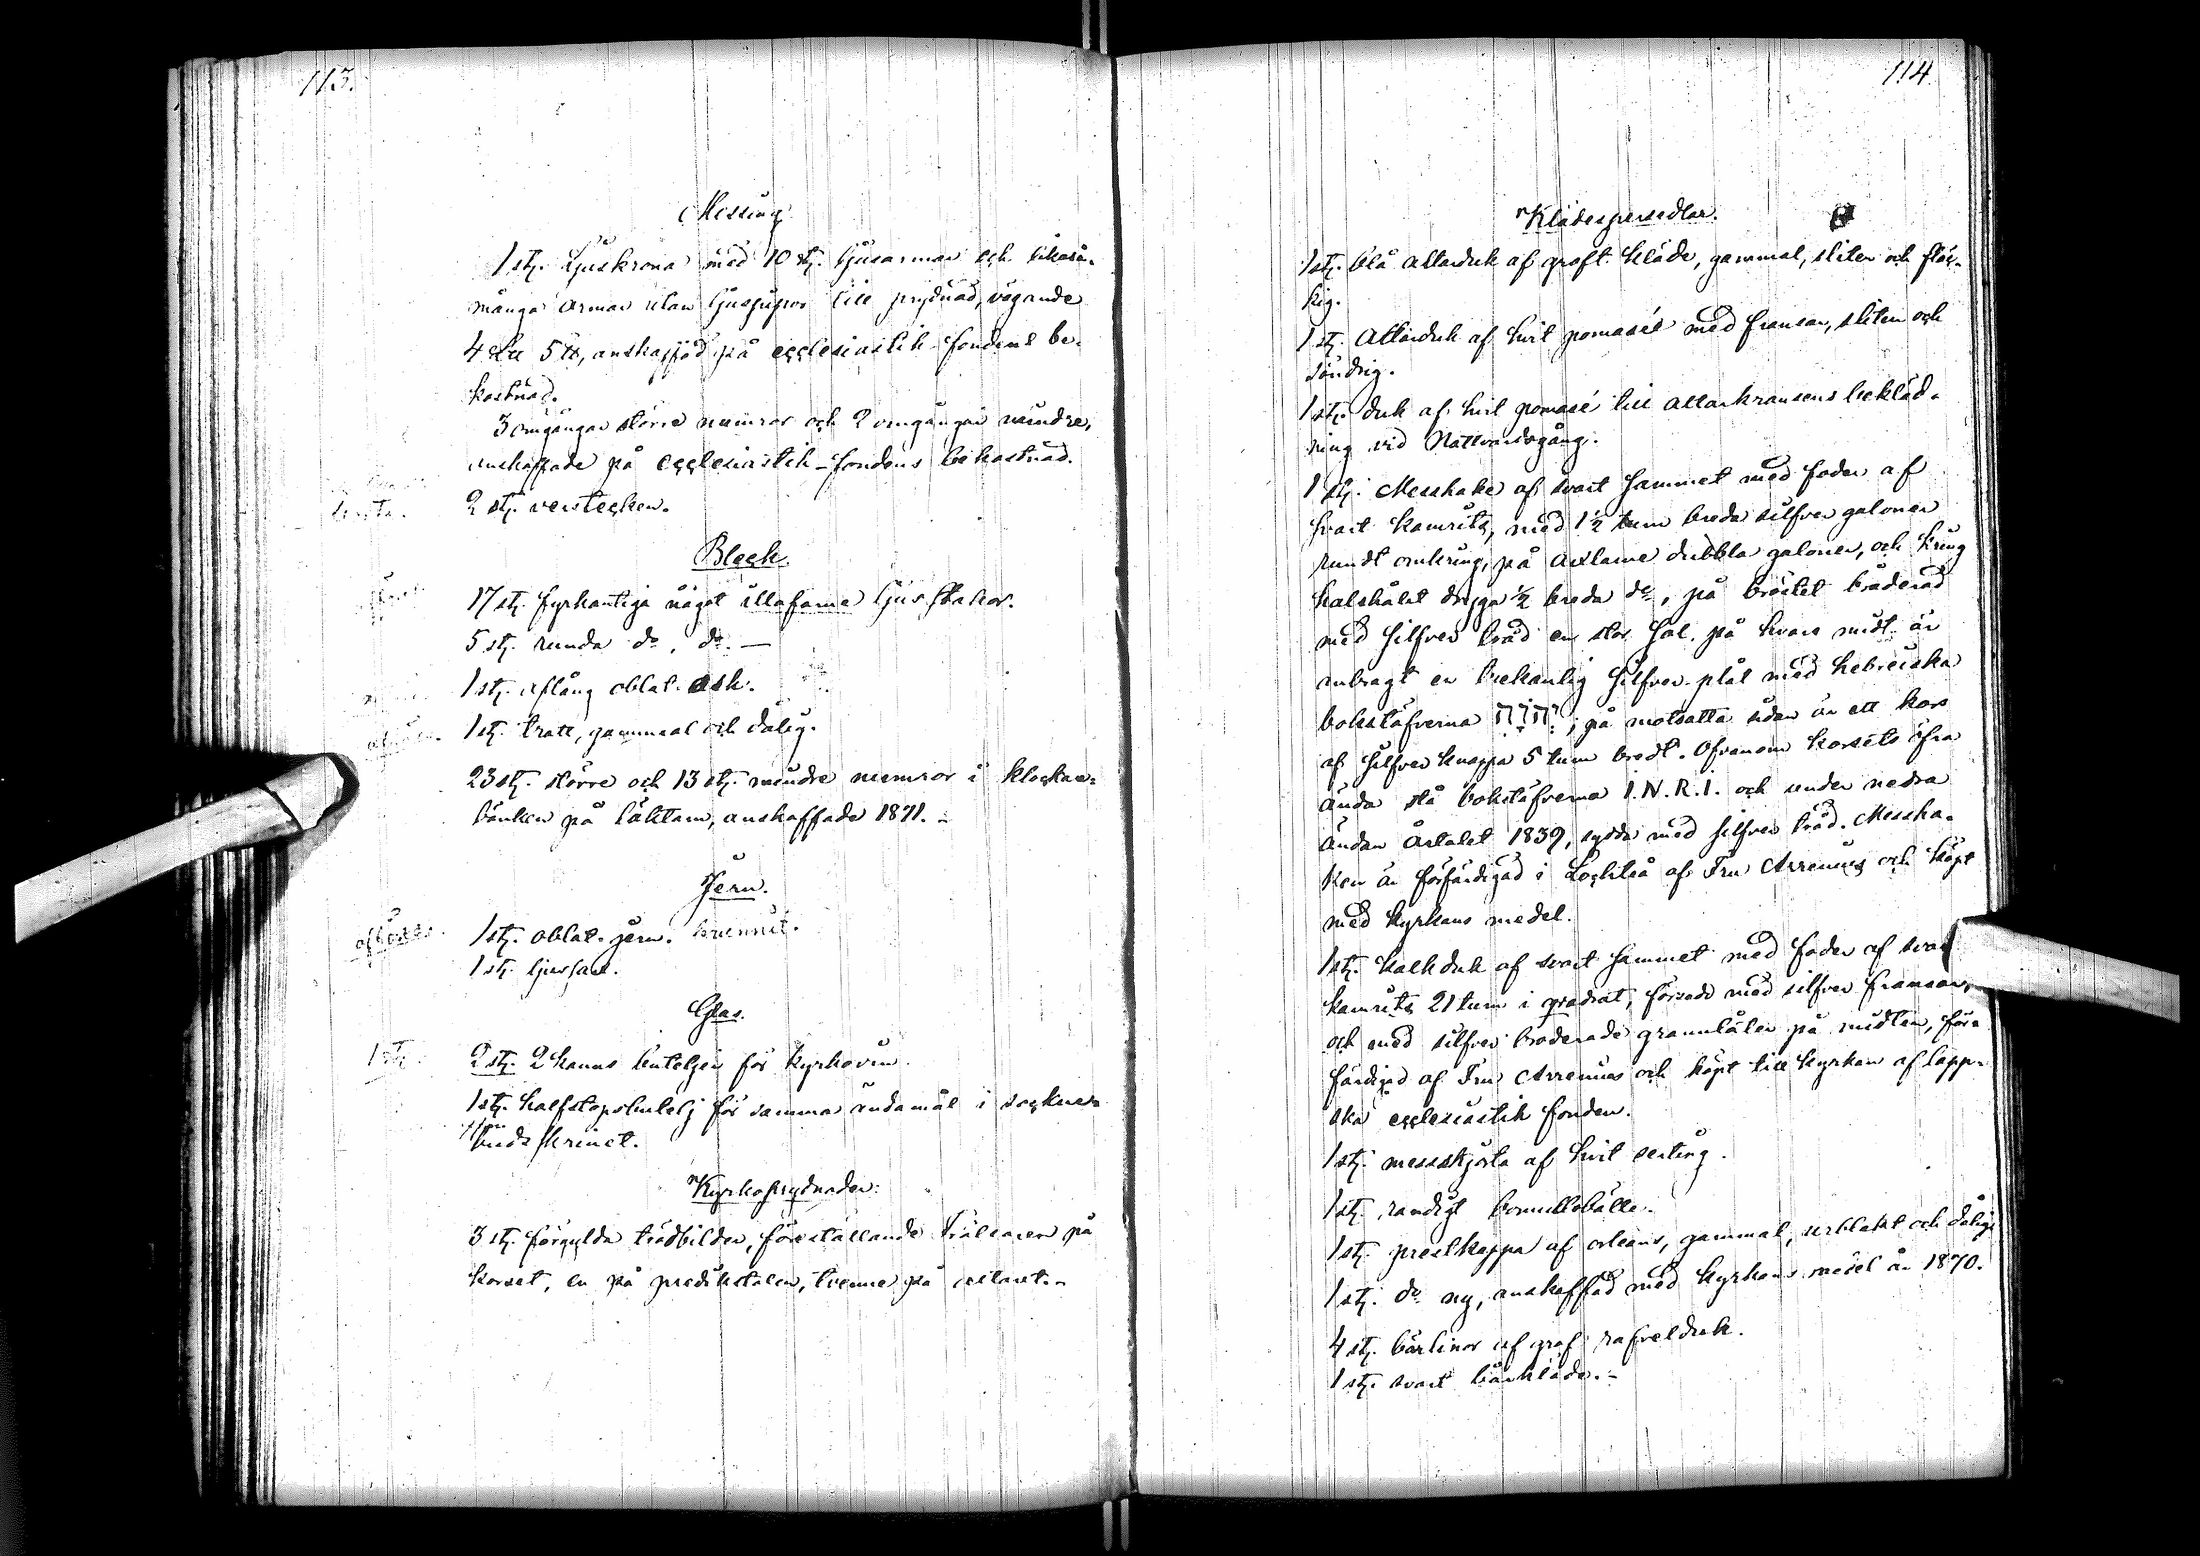 113.
Messing
1 st. Ljuskrona med 10 st. ljusarmar och likaså
många armar utan ljuspipor till prydnad, vägande
4 5 ℔, anskaffad på ecclesiastik-fondens be-
kostnad.
3 omgångar större numror och 2 omgångar mindre,
anskaffade på ecclesiastik-fondens bekostnad.
2 st. verstecken.
Bleck.
17 st. fyrkantiga något illafarna ljusstakar.
5 st. runda do. do. —
1 st. aflång oblat-ask.
1 st. tratt, gammal och dålig.
23 st. större och 13 st. mindre numror i klockare-
bänken på läktarn, anskaffade 1871.
Jern.
1 st. oblat-jern.
1 st. ljussax.
Glas.
1 st.
2 st. 2 kanns buteljer för kyrkovin.
1 st. halfstopsbutelj för samma ändamål i sockne-
budsskrinet.
Kyrkoprydnader:
3 st. förgylda trädbilder, föreställande Frälsaren på
korset, en på predikstolen, tvenne på altaret.
114
Klädespersedlar.
1 st. blå altarduk af groft kläde, gammal, sliten och fläc-
kig.
1 st. Altarduk af hvit pomasé med fransar, sliten och
söndrig.
1 st. duk af hvit pomasé till altarkransens bekläd-
ning vid Nattvardsgång.
1 st. Messhake af svart sammet med foder af
svart kamrits, med 1½ tum breda silfver galoner
rundt omkring, på axlarne dubbla galoner, och kring
halshålet dryga ½ breda do, på bröstet broderad
med silfver tråd en stor sol, på hvars midt är
anbragt en trekantig silfver-plåt med hebreiska
bokstäfverna יהוה; på motsatta sidan är ett kors
af silfver knappa 5 tum bredt. Ofvanom korsets öfra
ända stå bokstäfverna I.N.R.I. och under nedra
ändan årtalet 1839, sydda med silfver tråd. Messha-
ken är förfärdigad i Lochteå af Fru Arrenius och köpt
med kyrkans medel.
1 st. kalkduk af svart sammet med foder af svart
kamrits 21 tum i qvadrat, försedd med silfver fransar,
och med silfver broderade grannlåten på midten, för-
färdigad af Fru Arrenius och köpt till kyrkan af lapp-
ska ecclesiastik fonden.
1 st. messskjorta af hvit serting.
1 st. randigt bomullsbälte.
1 st. prestkappa af orleans, gammal, urblekt och dålig.
1 st. do ny, anskaffad med kyrkans medel år 1870.
4 st. bårlinor af grof rafvelduk.
1 st. svart bårkläde.